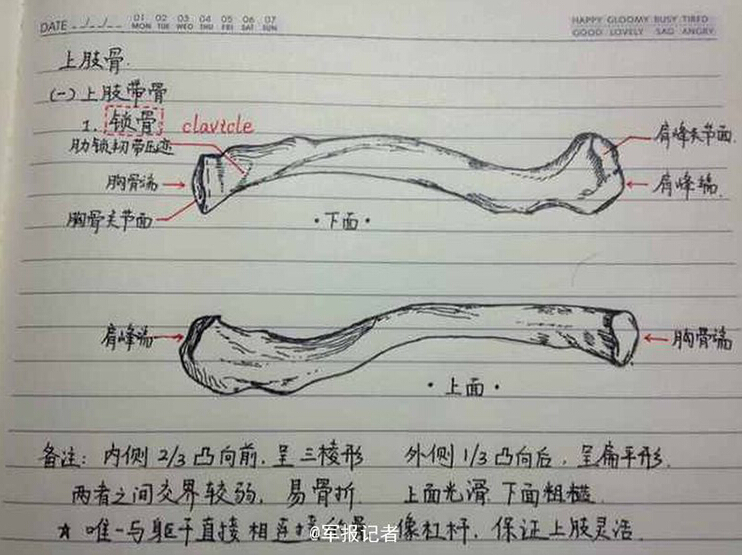 DATE _/_/_. 01 02 03 04 05 06 07
MON TUE WED THU FRI SAT SUN
HAPPY GLOOMY BUSY TIRED
GOOD LOVELY SAD ANGRY
上肢骨.
(一)上肢带骨
1. 锁骨 clavicle
肋锁韧带压迹
胸骨端
胸骨关节面
肩峰关节面.
肩峰端.
·下面·
肩峰端
胸骨端
·上面·
备注: 内侧 2/3 凸向前, 呈三棱形 外侧 1/3 凸向后, 呈扁平形.
两者之间交界较弱, 易骨折. 上面光滑 下面粗糙.
* 唯一与躯干直接相连 像杠杆, 保证上肢灵活.
@军报记者